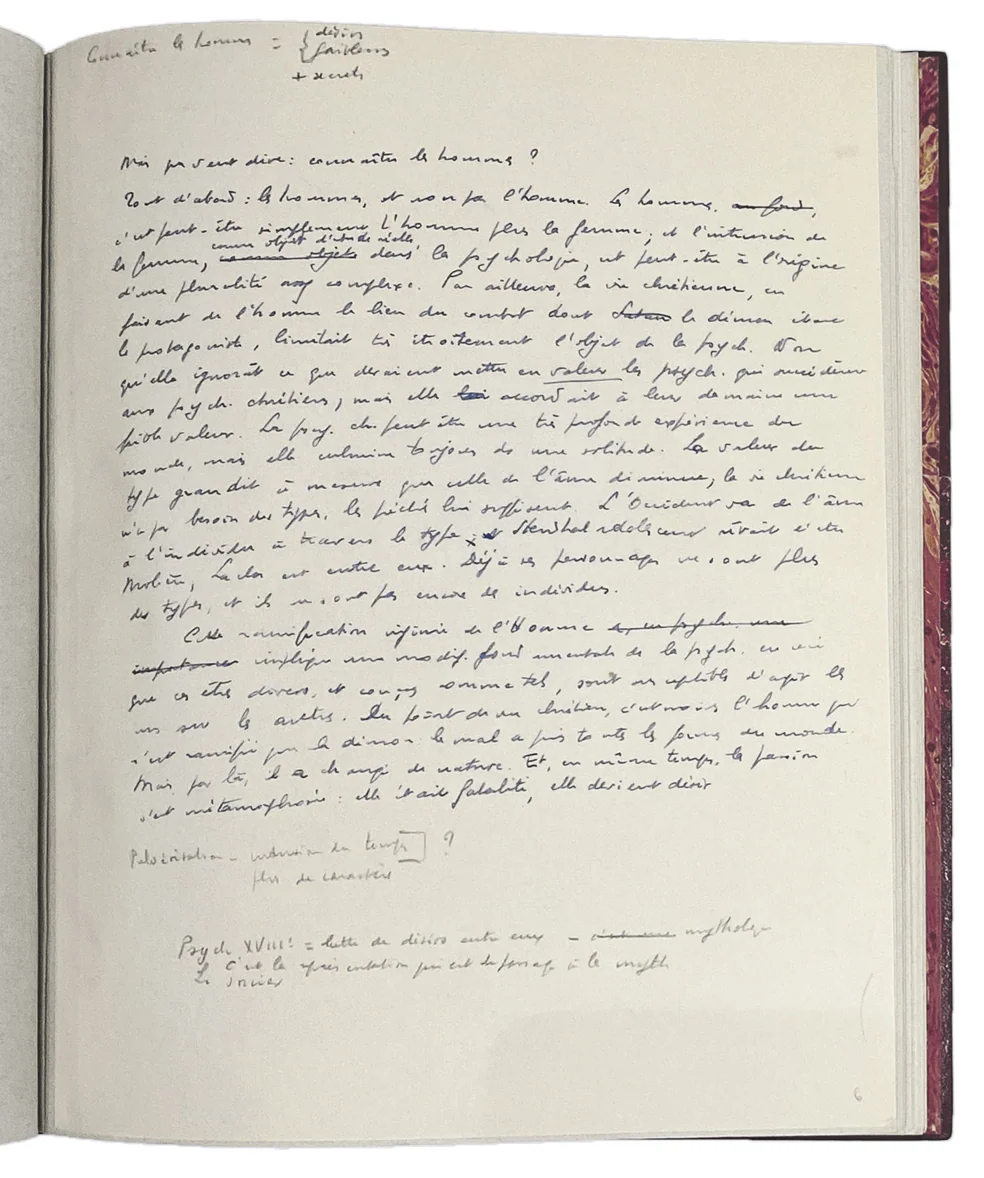 Connaître les hommes = { désirs
faiblesses
+ secrets
Mais que veut dire : connaître les hommes ?
Tout d'abord : les hommes, et non pas l'homme. Les hommes, au fond,
c'est peut-être simplement L'homme plus la femme ; et l'intrusion de
comme objet d'étude réelle
la femme, comme objets dans la psychologie, est peut-être à l'origine
d'une pluralité assez complexe. Par ailleurs, la vie chrétienne, en
faisant de l'homme le lieu du combat dont Satan le démon était
le protagoniste, limitait très étroitement l'objet de la psych. Non
qu'elle ignorât ce que devaient mettre en valeur les psych. qui succédèrent
aux psych. chrétiens ; mais elle lui accordait à leur domaine une
faible valeur. La psy. ch. peut être une très profonde expérience du
monde, mais elle culmine toujours ds une solitude. La valeur du
type grandit à mesure que celle de l'âme diminue ; la vie chrétienne
n'a pas besoin des types, les péchés lui suffisent. L'Occident va de l'âme
à l'individu à travers le type ; et Stendhal adolescent rêvait d'être
Molière, Laclos est entre eux. Déjà ses personnages ne sont plus
des types, et ils ne sont pas encore des individus.
Cette ramification infinie de l'Homme a, en psych. une
importance implique une modif. fondamentale de la psych. en ceci
que ces êtres divers, et conçus comme tels, sont susceptibles d'agir les
uns sur les autres. Du point de vue chrétien, c'est moins l'homme qui
s'est ramifié que le démon : le mal a pris toutes les formes du monde.
Mais, par là, il a changé de nature. Et, en même temps, la passion
s'est métamorphosée : elle était fatalité, elle devient désir
Pulvérisation - intrusion du temps] ?
plus de caractère
Psych XVIIIe = lutte de désirs entre eux - c'est une mythologie
C'est la représentation qui est le passage à la myth